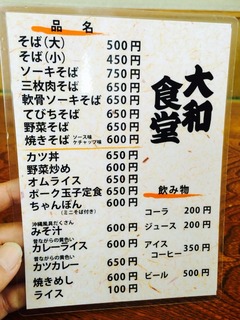 品名
そば(大) 500円
そば(小) 450円
ソーキそば 750円
三枚肉そば 650円
軟骨ソーキそば 650円
てびちそば 650円
野菜そば 650円
焼きそば ソース味 ケチャップ味 600円
カツ丼 650円
野菜炒め 600円
オムライス 650円
ポーク玉子定食 650円
ちゃんぽん 600円
(ミニそば付き)
沖縄風具だくさん
みそ汁 600円
昔ながらの黄色い
カレーライス 600円
昔ながらの黄色い
カツカレー 650円
焼きめし 600円
ライス 100円
大和食堂
飲み物
コーラ 200円
ジュース 200円
アイスコーヒー 350円
ビール 500円